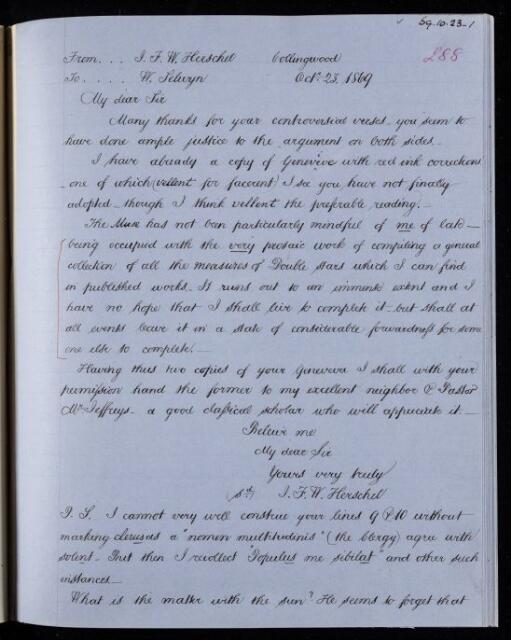 69.10.23-1
288
From... J. F. W. Herschel Collingwood
To.... W. Selwyn Oct. 23, 1869
My dear Sir
Many thanks for your controversial verses - you seem to
have done ample justice to the argument on both sides.
I have already a copy of Genevieve with red ink corrections
- one of which (vellent for facerent) I see you have not finally
adopted - though I think vellent the preferable reading.
The Muse has not been particularly mindful of me of late -
being occupied with the very prosaic work of compiling a general
collection of all the measures of Double stars which I can find
in published works. It runs out to an immense extent and I
have no hope that I shall live to complete it - but shall at
all events leave it in a state of considerable forwardness for some
one else to complete. -
Having thus two copies of your Genevieve I shall with your
permission hand the former to my excellent neighbor & Pastor
Mr Jeffreys - a good classical scholar who will appreciate it -
Believe me
My dear Sir
Yours very truly
J. F. W. Herschel
P. S. I cannot very well construe your lines 9 & 10 without
marking clerus as a "nomen multitudinis" (the Clergy) agree with
solent - But then I recollect "Populus me sibilat" and other such
instances -
What is the matter with the sun? He seems to forget that